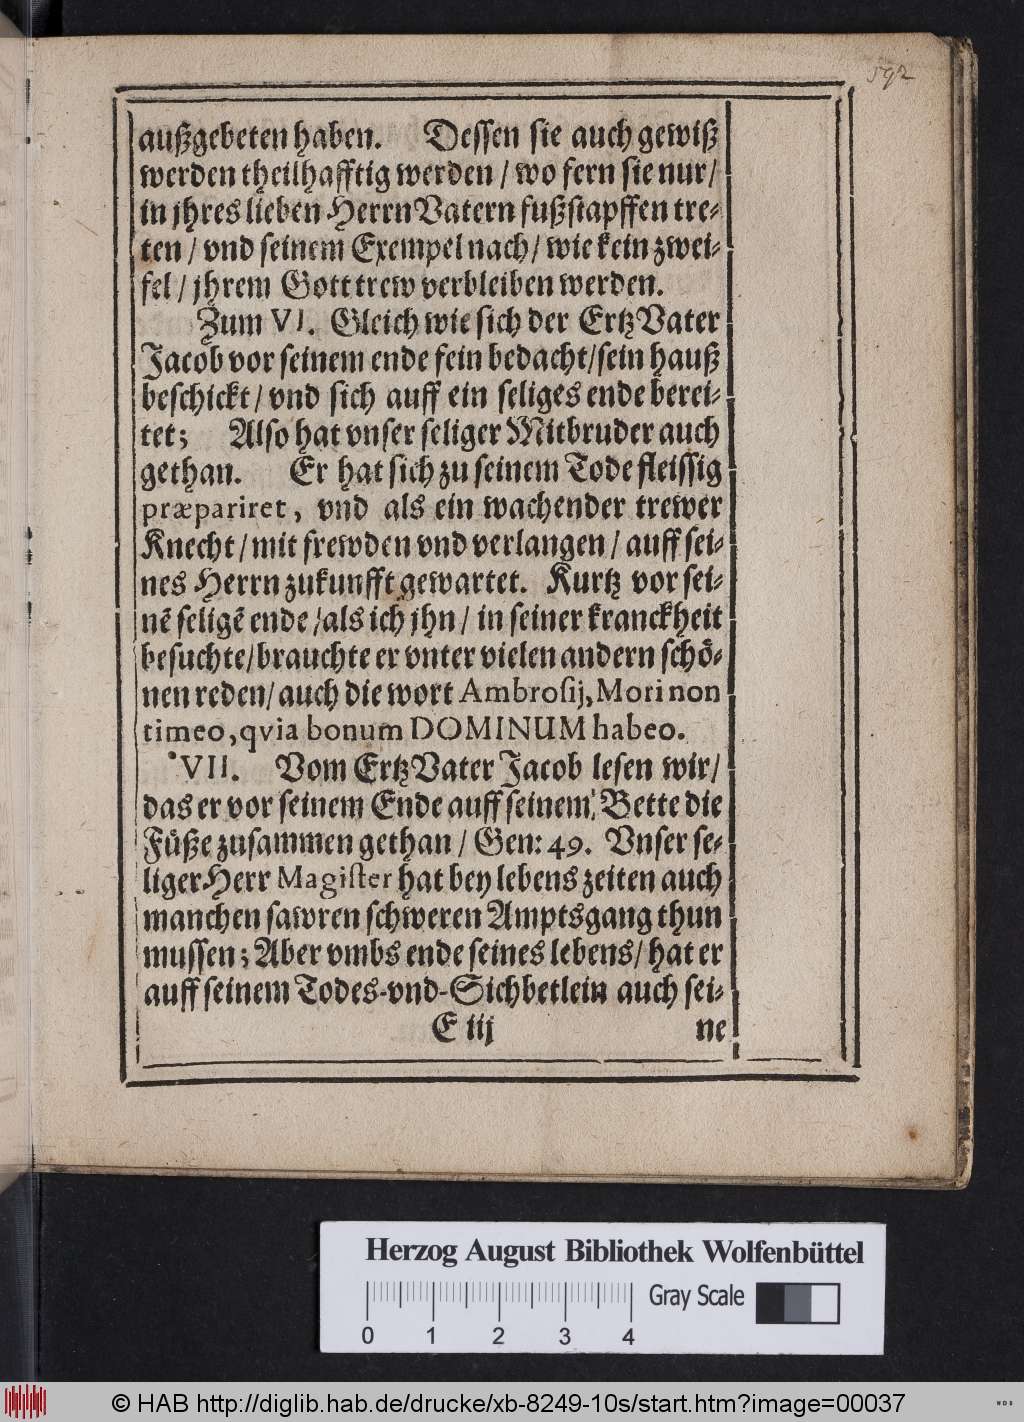 592
außgebeten haben. Dessen sie auch gewiß
werden theilhafftig werden / wo fern sie nur /
in jhres lieben Herrn Vatern fußstapffen tre-
ten / vnd seinem Exempel nach / wie kein zwei-
fel / jhrem Gott trew verbleiben werden.
Zum VI. Gleich wie sich der Ertz Vater
Jacob vor seinem ende fein bedacht / sein hauß
beschickt / vnd sich auff ein seliges ende berei-
tet; Also hat vnser seliger Mitbruder auch
gethan. Er hat sich zu seinem Tode fleissig
præpariret, vnd als ein wachender trewer
Knecht / mit frewden vnd verlangen / auff sei-
nes Herrn zukunfft gewartet. Kurtz vor sei-
nē seligē ende / als ich jhn / in seiner kranckheit
besuchte / brauchte er vnter vielen andern schö-
nen reden / auch die wort Ambrosij, Mori non
timeo, qvia bonum DOMINUM habeo.
VII. Vom Ertz Vater Jacob lesen wir /
das er vor seinem Ende auff seinem Bette die
Füße zusammen gethan / Gen: 49. Vnser se-
liger Herr Magister hat bey lebens zeiten auch
manchen sawren schweren Amptsgang thun
mussen; Aber vmbs ende seines lebens / hat er
auff seinem Todes-vnd-Sichbetlein auch sei-
E iij ne
Herzog August Bibliothek Wolfenbüttel
Gray Scale
0 1 2 3 4
© HAB http://diglib.hab.de/drucke/xb-8249-10s/start.htm?image=00037
WDB